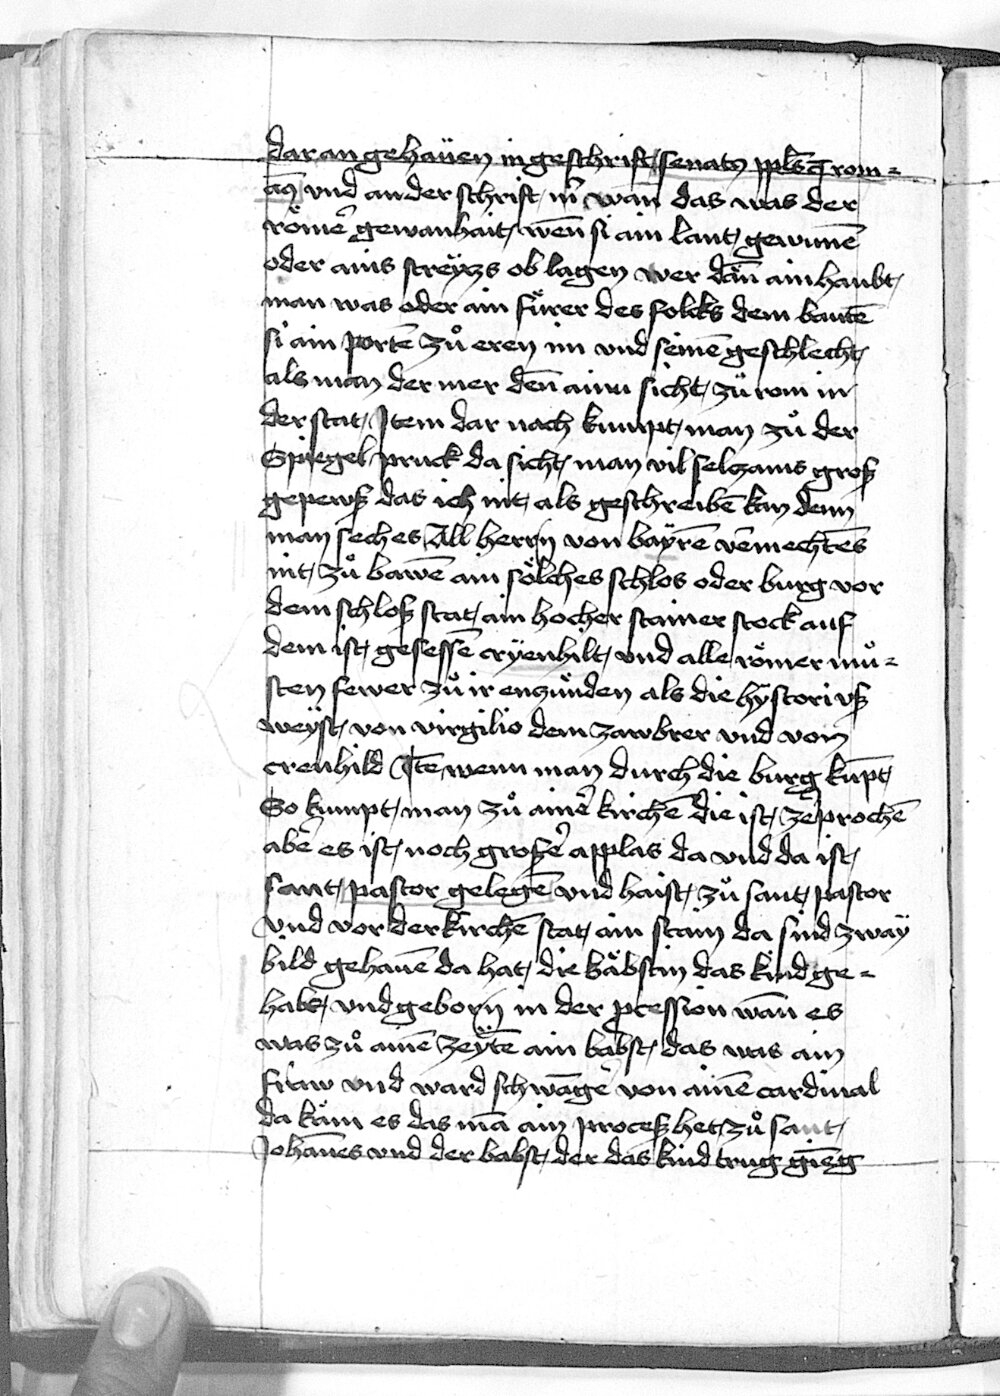 dar an gehaüen in geschrift senatus pplsq̃ rom=
anus vnd an der schrift in wañ das was der
römer̃ gewanhait wen̄ si ain lant gewunnē
oder ains streÿczs ob lagen wer dān ain haubt
man was oder ain fürer des folcks dem bautē
si ain portē zů eren im vnd seinē geschlecht
als man der mer den̄ ainu sicht zů rom in
der stat Item dar nach kumpt man zů der
Spiegel pruck da sicht man vil selczams groß
gepewß das ich nit als geschreibē kan denn
man sech es All herrn von baÿrē vermechtēs
nit zů bawē ain sölches schlos oder burg vor
dem schloß stat ain hocher stainer stock auf
dem ist gesessē crÿenhilt vnd alle römer mů=
sten fewer zů ir enzünden als die hÿstori vß
weÿst von virgilio dem zawbrer vnd von
crenhild Itē wenn man durch die burg kūpt
So kumpt man zů ainer̃ kirchē die ist zerprochē
aber̃ es ist noch großer̃ applas da vnd da ist
sant pastor gelegē vnd haist zů sant pastor
vnd vor der kirchē stat ain stain da sind zwaÿ
bild gehauē da hat die bäbstin das kind ge=
habt vnd geborn in der pcession wān es
was zů ainē zeÿtē ain babst das was ain
fraw vnd ward schwāger von ainē cardinal
da käm es das mā ain proceß het zů sant
Johānes vnd der babst der das kind trug gieng